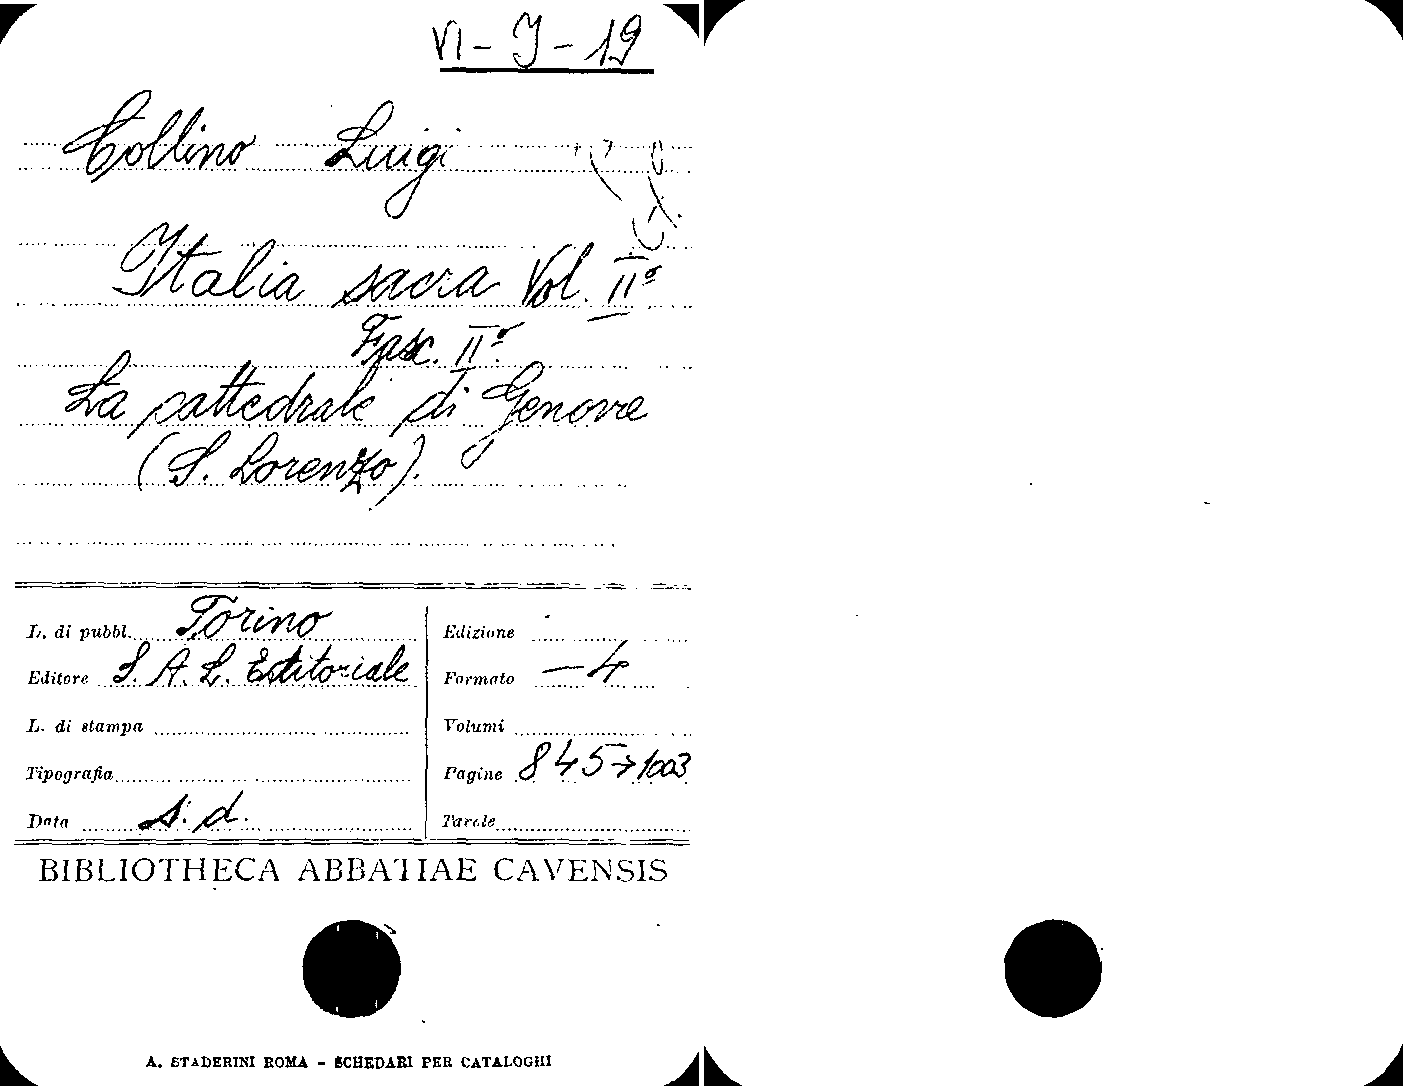 VI - J - 19
Collino Luigi
Italia sacra Vol. IIº
Fasc. IIº.
La cattedrale di Genova
(S. Lorenzo).
L. di pubbl. Torino
Editore S. A. L. Editoriale
L. di stampa
Tipografia
Data s. d.
Edizione
Formato - 4
Volumi
Pagine 845→1003
Tavole
BIBLIOTHECA ABBATIAE CAVENSIS
A. STADERINI ROMA - SCHEDARI PER CATALOGHI